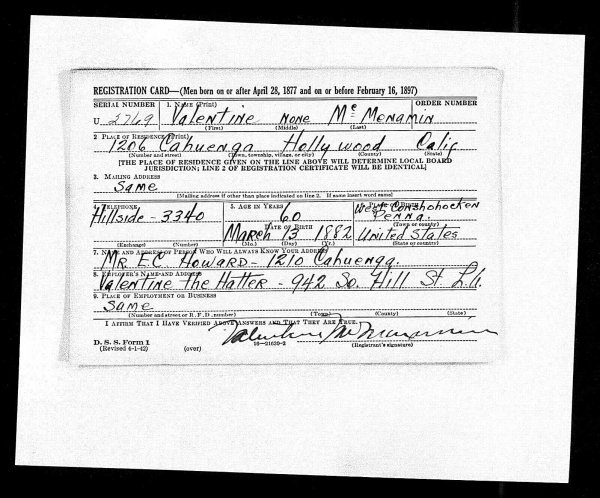 REGISTRATION CARD—(Men born on or after April 28, 1877 and on or before February 16, 1897)
SERIAL NUMBER 1. NAME (Print) ORDER NUMBER
U 2769 Valentine None Mc Menamin
(First) (Middle) (Last)
2 PLACE OF RESIDENCE (Print)
1206 Cahuenga Hollywood Calif
(Number and street) (Town, township, village, or city) (County) (State)
[THE PLACE OF RESIDENCE GIVEN ON THE LINE ABOVE WILL DETERMINE LOCAL BOARD
JURISDICTION; LINE 2 OF REGISTRATION CERTIFICATE WILL BE IDENTICAL]
3. MAILING ADDRESS
Same
[Mailing address if other than place indicated on line 2. If same insert word same]
4. TELEPHONE 5. AGE IN YEARS 6. PLACE OF BIRTH
Hillside - 3340 60 West Conshohocken
Penna.
DATE OF BIRTH (Town or county)
March 13 1882 United States
(Exchange) (Number) (Mo.) (Day) (Yr.) (State or country)
7. NAME AND ADDRESS OF PERSON WHO WILL ALWAYS KNOW YOUR ADDRESS
Mr E.C. Howard - 1210 Cahuenga.
8. EMPLOYER'S NAME AND ADDRESS
Valentine the Hatter - 942 So. Hill St. L.A.
9. PLACE OF EMPLOYMENT OR BUSINESS
Same
(Number and street or R. F. D. number) (Town) (County) (State)
I AFFIRM THAT I HAVE VERIFIED ABOVE ANSWERS AND THAT THEY ARE TRUE.
Valentine McMenamin
D. S. S. Form 1
(Revised 4-1-42) (over) 16—21630-2 (Registrant's signature)